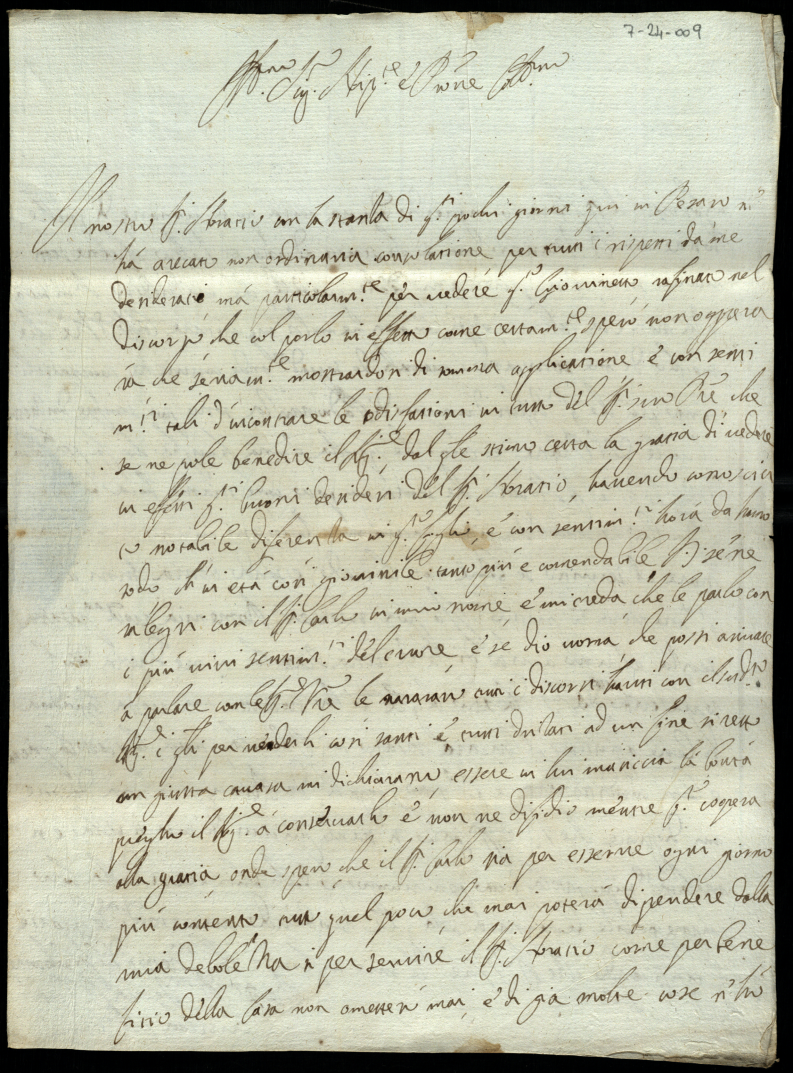 7-24-009
Sig.r Nip.te e Prone
Il nostro Sr. Horatio con la stanza di q.ti pochi giorni qui in Pesaro
há arecato non ordinaria consolatione per tutti i rispetti da me
desiderati má particolarm.te per vedere q.to giovinetto rafinato nel
discorso che col porlo in effetto come certam.te spero non oppera
rá che seriam.te mostrandosi di somma applicatione é con senti
m.ti tali d'incontrare le sodisfationi in tutto del Sr. suo Pre che
se ne pole benedire il Sig.e dal qle stimo certa la gratia di vedere
in effetti q.ti buoni desideri del Sr. Horatio, havendo conosciu
to notabile diferenza in q.to figlio é con sentim.ti hora da huomo
sodo ch in etá cosi giovinile tanto piú e comendabile
ralegri con il Sr. Carlo in mio nome é mi creda che le parlo con
i piú vivi sentim.ti del cuore é se Dio vorrá che possi arivare
á parlare con le le nararano tutti i discorsi hauti con il sud.to
Sig.e i qli per vederli cosi santi é tutti drizati ad un fine si retto
un giusta causa mi dichiarano essere in lui la bontá
preghi il Sig.e á conservarlo é non ne difidio mentre q.ti coopera
alla gratia onde spero che il Sr. Carlo sia per esserne ogni giorno
piú contento tutto quel poco che mai poterá dipendere dalla
mia debolezza si per servire il Sr. Horatio come per bene
fitio della Casa non ometteró mai é di giá molte cose